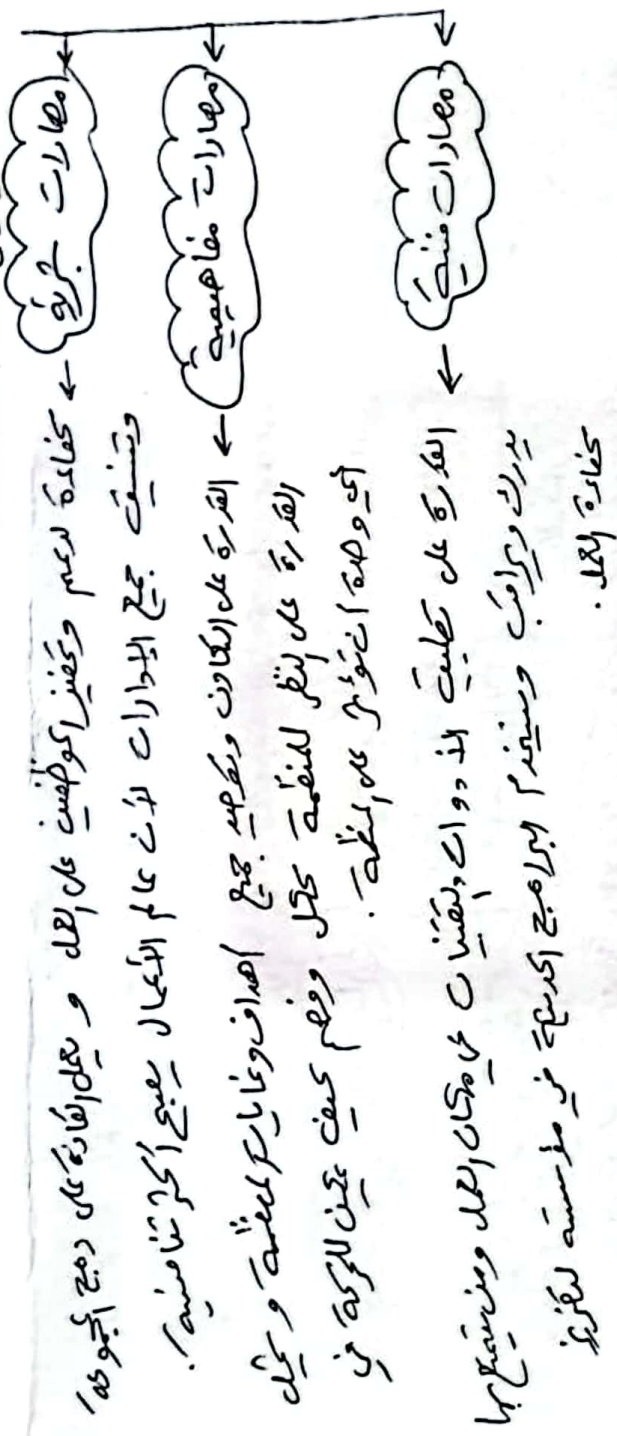 مهارات بشرية
← كفاءة لدعم وتحفيز الموظفين على العمل و يعمل القادة على دمج الجهود
وتنسيق جميع الإدارات لأن عالم الأعمال يصبح أكثر تنافسية.
مهارات مفاهيمية
← القدرة على التعاون وتوحيد جميع أهداف وغايات المنظمة و تمثل
القدرة على النظر للمنظمة ككل وفهم كيف يمكن للحركة في
أي وحدة أن تؤثر على المنظمة.
مهارات فنية
← القدرة على تطبيق الأدوات والتقنيات في مكان العمل ومن يتمتع بها
يدرك ويراقب ويستخدم البرامج الحديثة في مؤسسته لتعزيز
كفاءة العمل.